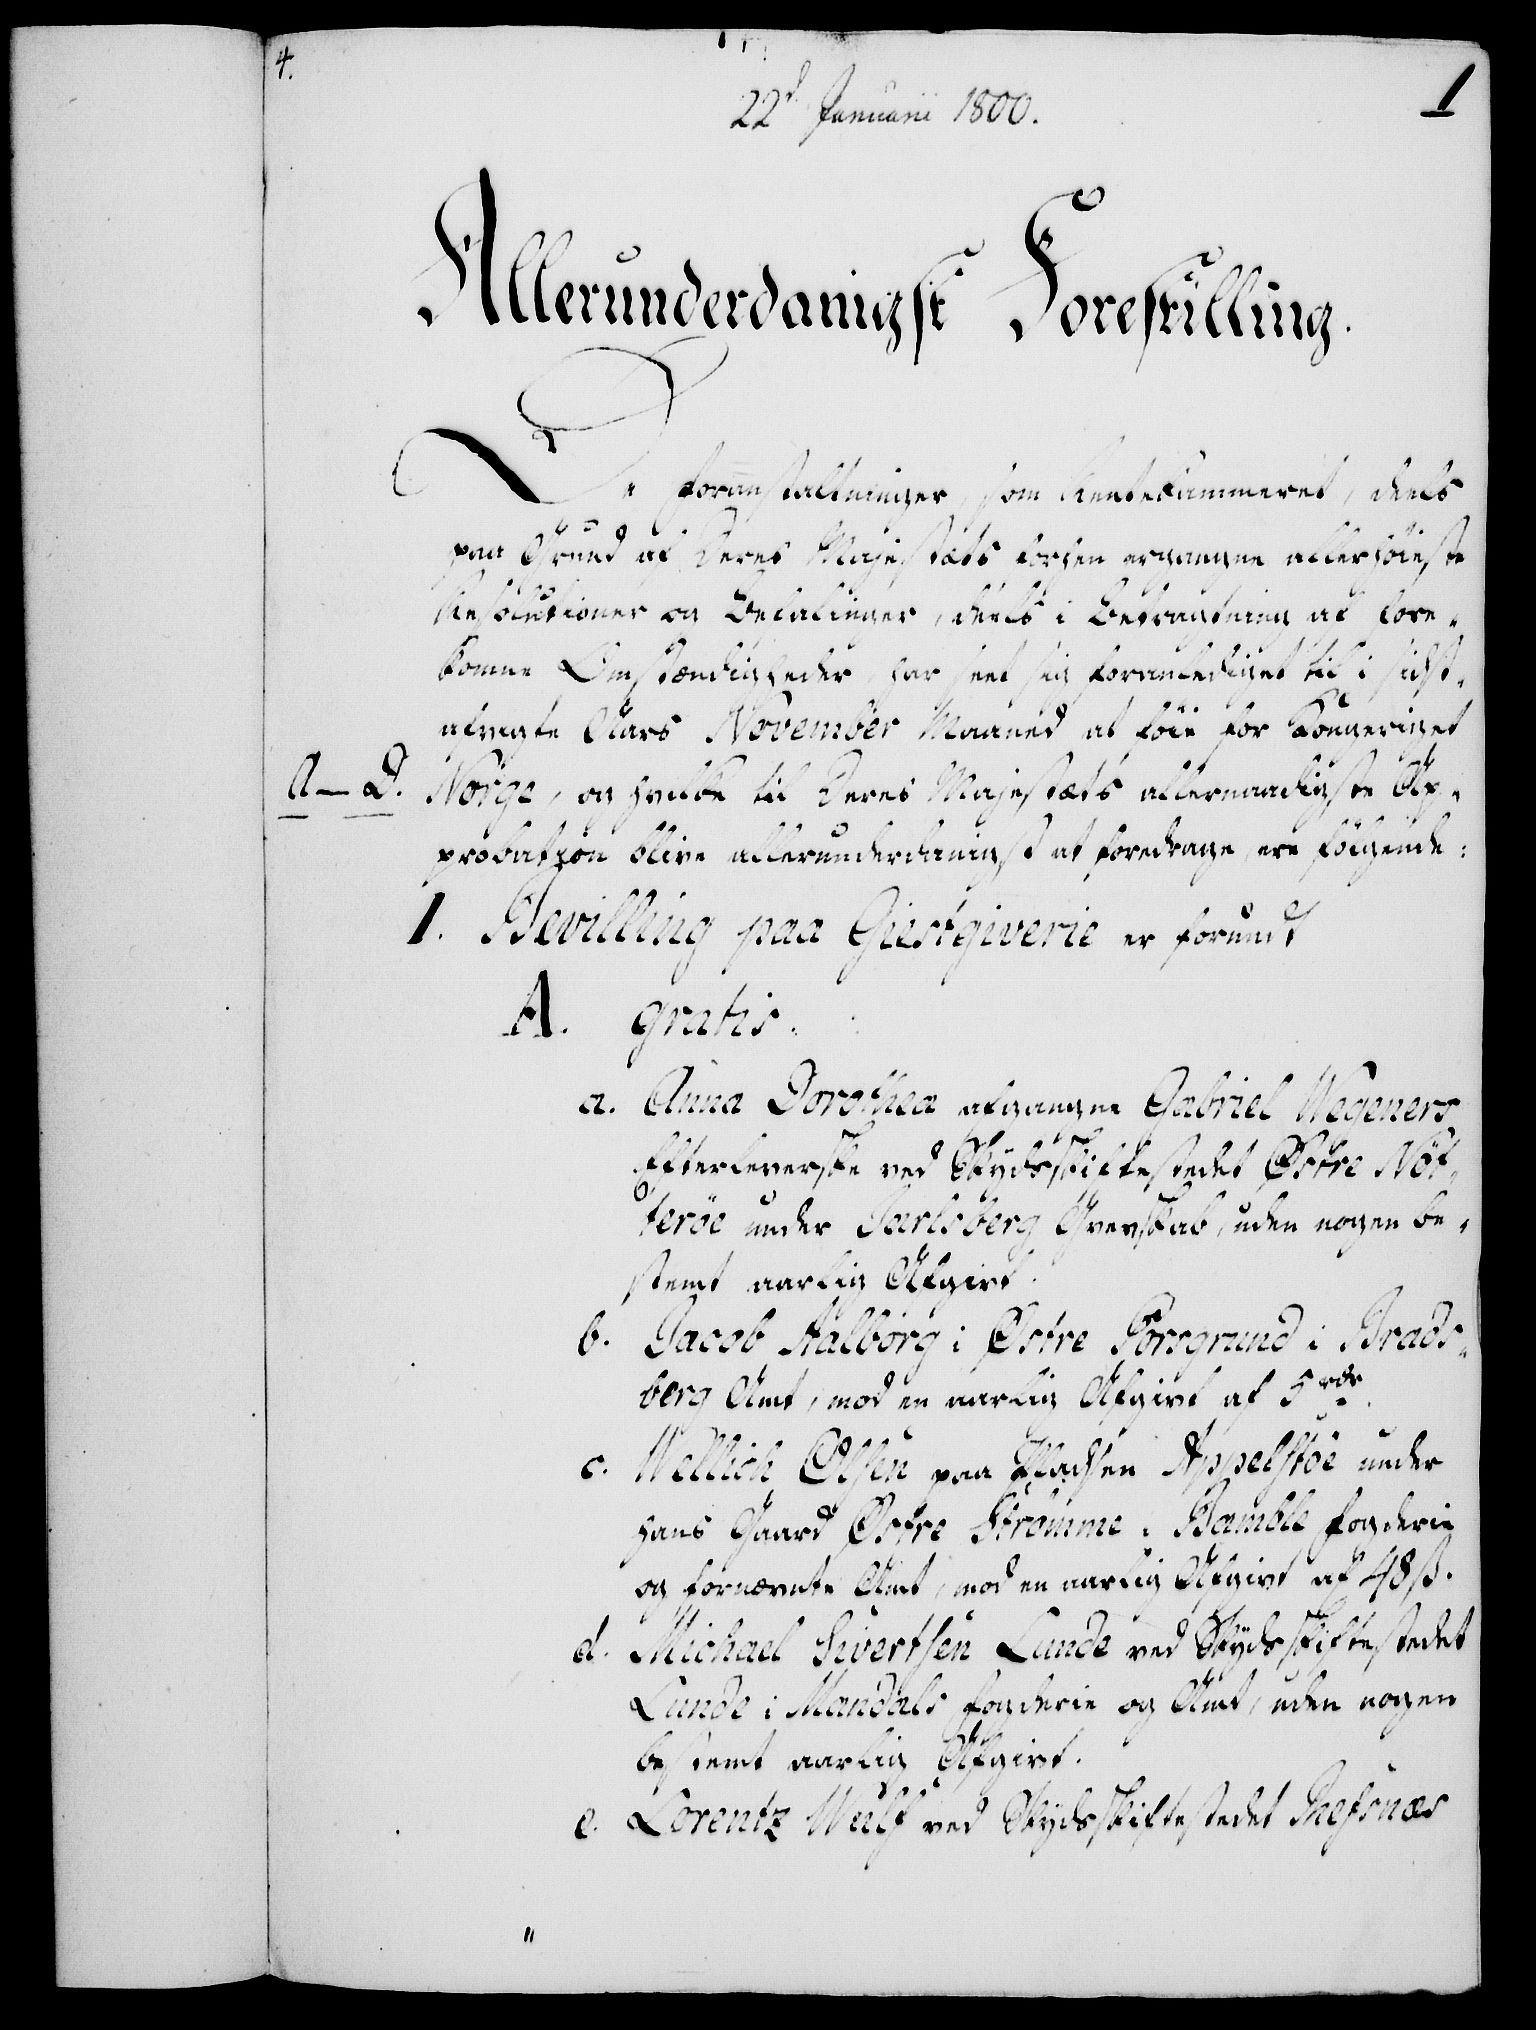 4.
1
22d Januarii 1800.
Allerunderdanigst Forestilling.
De Foranstaltninger, som Rentekammeret, deels
paa Grund af Deres Majestæts forhen ergangne allerhöieste
Resolutioner og Befalinger, deels i Betragtning af fore-
komne Omstændigheder, har seet sig foranlediget til i sidst-
afvigte Aars November Maaned at föie for Kongeriget
A - D. Norge, og hvilke til Deres Majestæts allernaadigste Ap-
probation blive allerunderdanigst at foredrage, ere fölgende:
1. Bevilling paa Giestgiverie er forundt
A. gratis.
a. Anna Dorothea afgangne Gabriel Wegeners
Efterleverske ved Skydsskiftestedet Østre Nöt-
teröe under Jarlsberg Grevskab, uden nogen be-
stemt aarlig Afgivt.
b. Jacob Aalborg i Østre Porsgrund i Brads-
berg Amt, mod en aarlig Afgivt af 5 rdr.
c. Wellich Olsen paa Pladsen Appelstöe under
hans Gaard Østre Strömme i Bamble Fogderie
og fornævnte Amt, mod en aarlig Afgivt af 48 ß.
d. Michael Sivertsen Lunde ved Skydsskiftestedet
Lunde i Mandals Fogderie og Amt, uden nogen
bestemt aarlig Afgivt.
e. Lorentz Wulf ved Skydsskiftestedet